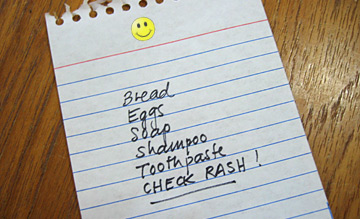 Bread
Eggs
Soap
Shampoo
Toothpaste
CHECK RASH!